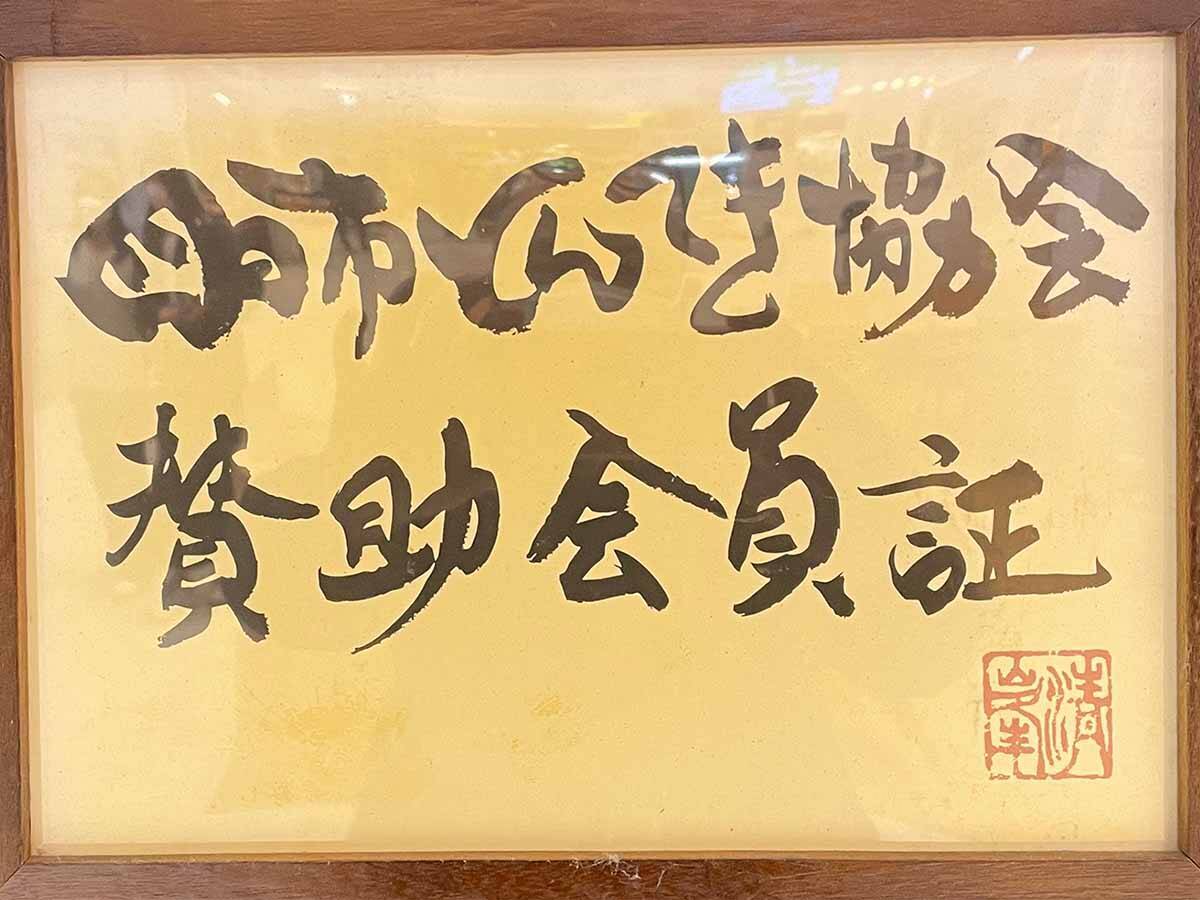 四日市とんてき協会
賛助会員証